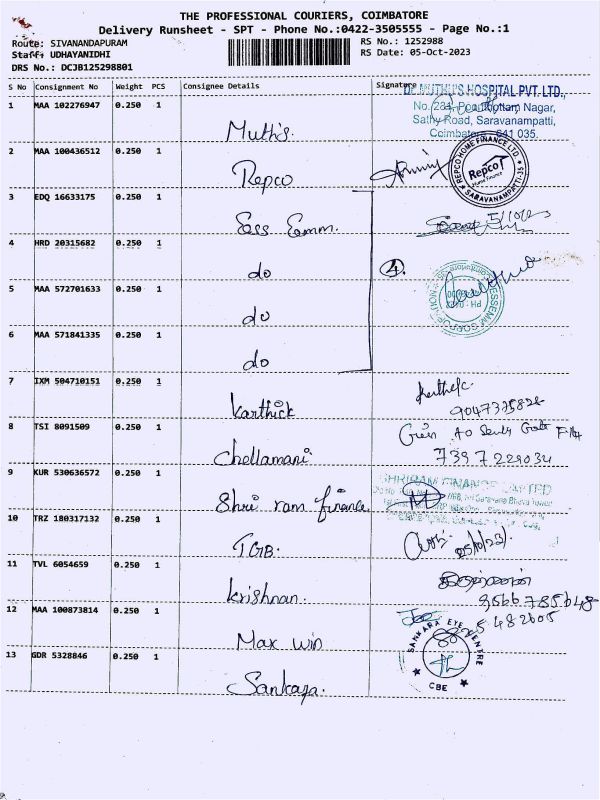 THE PROFESSIONAL COURIERS, COIMBATORE
Delivery Runsheet - SPT - Phone No.:0422-3505555 - Page No.:1
Route: SIVANANDAPURAM
RS No.: 1252988
Staff: UDHAYANIDHI
RS Date: 05-Oct-2023
DRS No.: DCJB125298801
S No Consignment No Weight PCS Consignee Details Signature
DR.MUTHU'S HOSPITAL PVT.LTD.,
1 MAA 102276947 0.250 1 Muthis.
Nagar,
Sathy Road, Saravanampatti,
Coimbatore 641 035.
2 MAA 100436512 0.250 1 Repco
REPCO HOME FINANCE LTD.
Repco
Home Finance
SARAVANAMPATTI-35
3 EDQ 16633175 0.250 1 Ess Emm.
4 HRD 20315682 0.250 1 do
4.
5 MAA 572701633 0.250 1 do
6 MAA 571841335 0.250 1 do
7 IXM 504710151 0.250 1 Karthick
8 TSI 8091509 0.250 1 Chellamani
7397229034
9 KUR 530636572 0.250 1 Shri ram finance
SHRIRAM FINANCE LIMITED
10 TRZ 180317132 0.250 1 TGB.
11 TVL 6054659 0.250 1 Krishnan.
9566785648
12 MAA 100873814 0.250 1 Max win
13 GDR 5328846 0.250 1 Sankara.
SANKARA EYE CENTRE
CBE